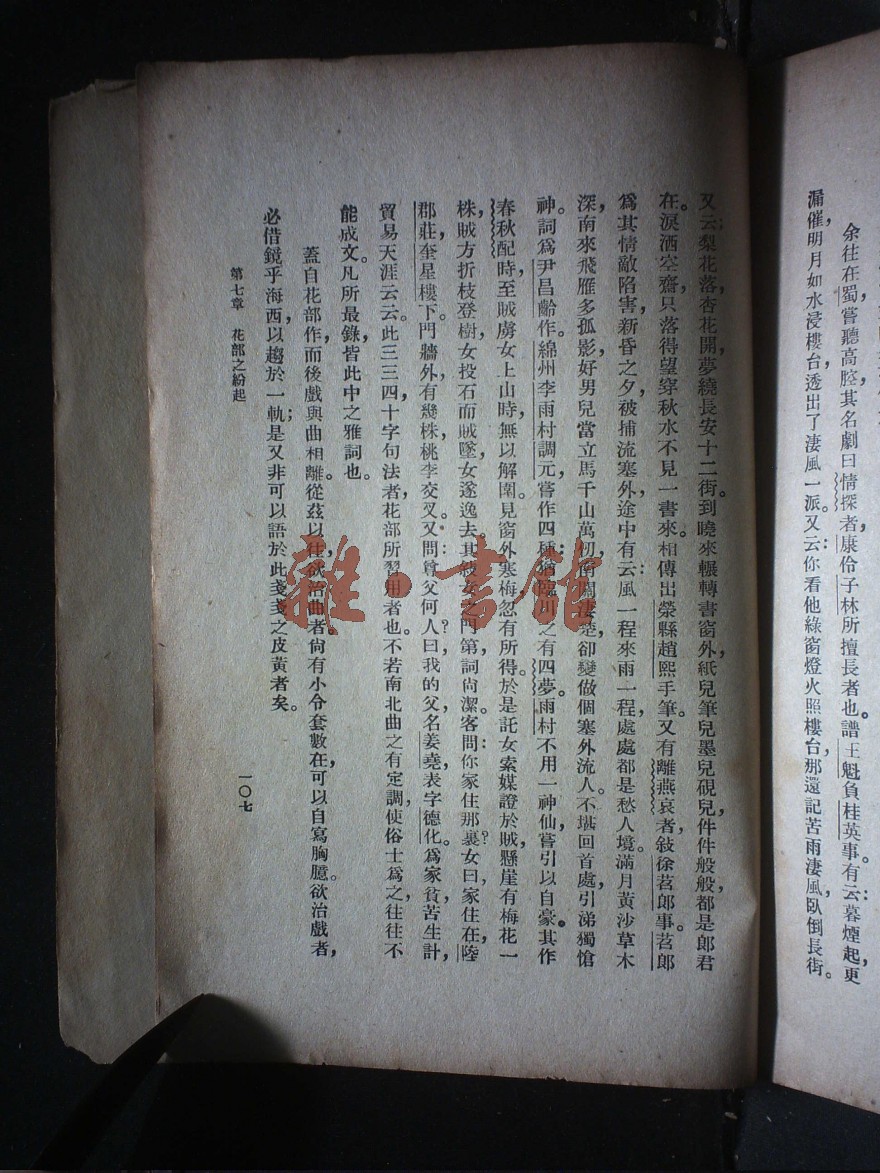 余往在蜀，嘗聽高腔，其名劇曰情探者，康伶子林所擅長者也。譜王魁負桂英事。有云：暮煙起，更
漏催，明月如水浸樓台，透出了淒風一派。又云：你看他綠窗燈火照樓台，那還記苦雨淒風，臥倒長街。
又云：梨花落，杏花開，夢繞長安十二街。到曉來輾轉書窗外，紙兒筆兒墨兒硯兒，件件般般都是郎君
在。淚洒空齋，只落得望穿秋水，不見一書來。相傳出榮縣趙熙手筆。又有離燕哀者，敍徐茗郎事。茗郎
爲其情敵陷害，新昏之夕，被捕流塞外，途中有云：風一程來雨一程，處處都是愁人境。滿月黃沙草木
深，南來飛雁多孤影，好男兒當立馬千山萬仞，卻變做個塞外流人。不堪回首處，引涕獨愴
神。詞爲尹昌齡作。綿州李雨村調元，嘗作四種，之有四夢。雨村不用一神仙，嘗引以自豪。其作
春秋配時，至賊虜女上山時，無以解圍。見窗外寒梅，忽有所得。於是託女索媒證於賊，懸崖有梅花一
株，賊方折枝登樹，女投石而賊墜，女遂逸去。其叙女之門第，詞尙潔。客問：你家住那裏？女曰：家住在陸
郡莊，奎星樓下。門牆外有幾株桃李交叉。又問：尊父何人？曰：我的父，名姜堯，表字德化。爲家貧苦生計，
貿易天涯云云。此三三四十字句法者，花部所習用者也。不若南北曲之有定調，使俗士爲之，往往不
能成文。凡所最錄，皆此中之雅詞也。
蓋自花部作，而後戲與曲相離。從茲以往，欲治曲者，尙有小令套數在，可以自寫胸臆。欲治戲者，
必借鏡乎海西，以趨於一軌；是又非可以語於此戔戔之皮黃者矣。
第七章　花部之紛起
一〇七
雜·書館